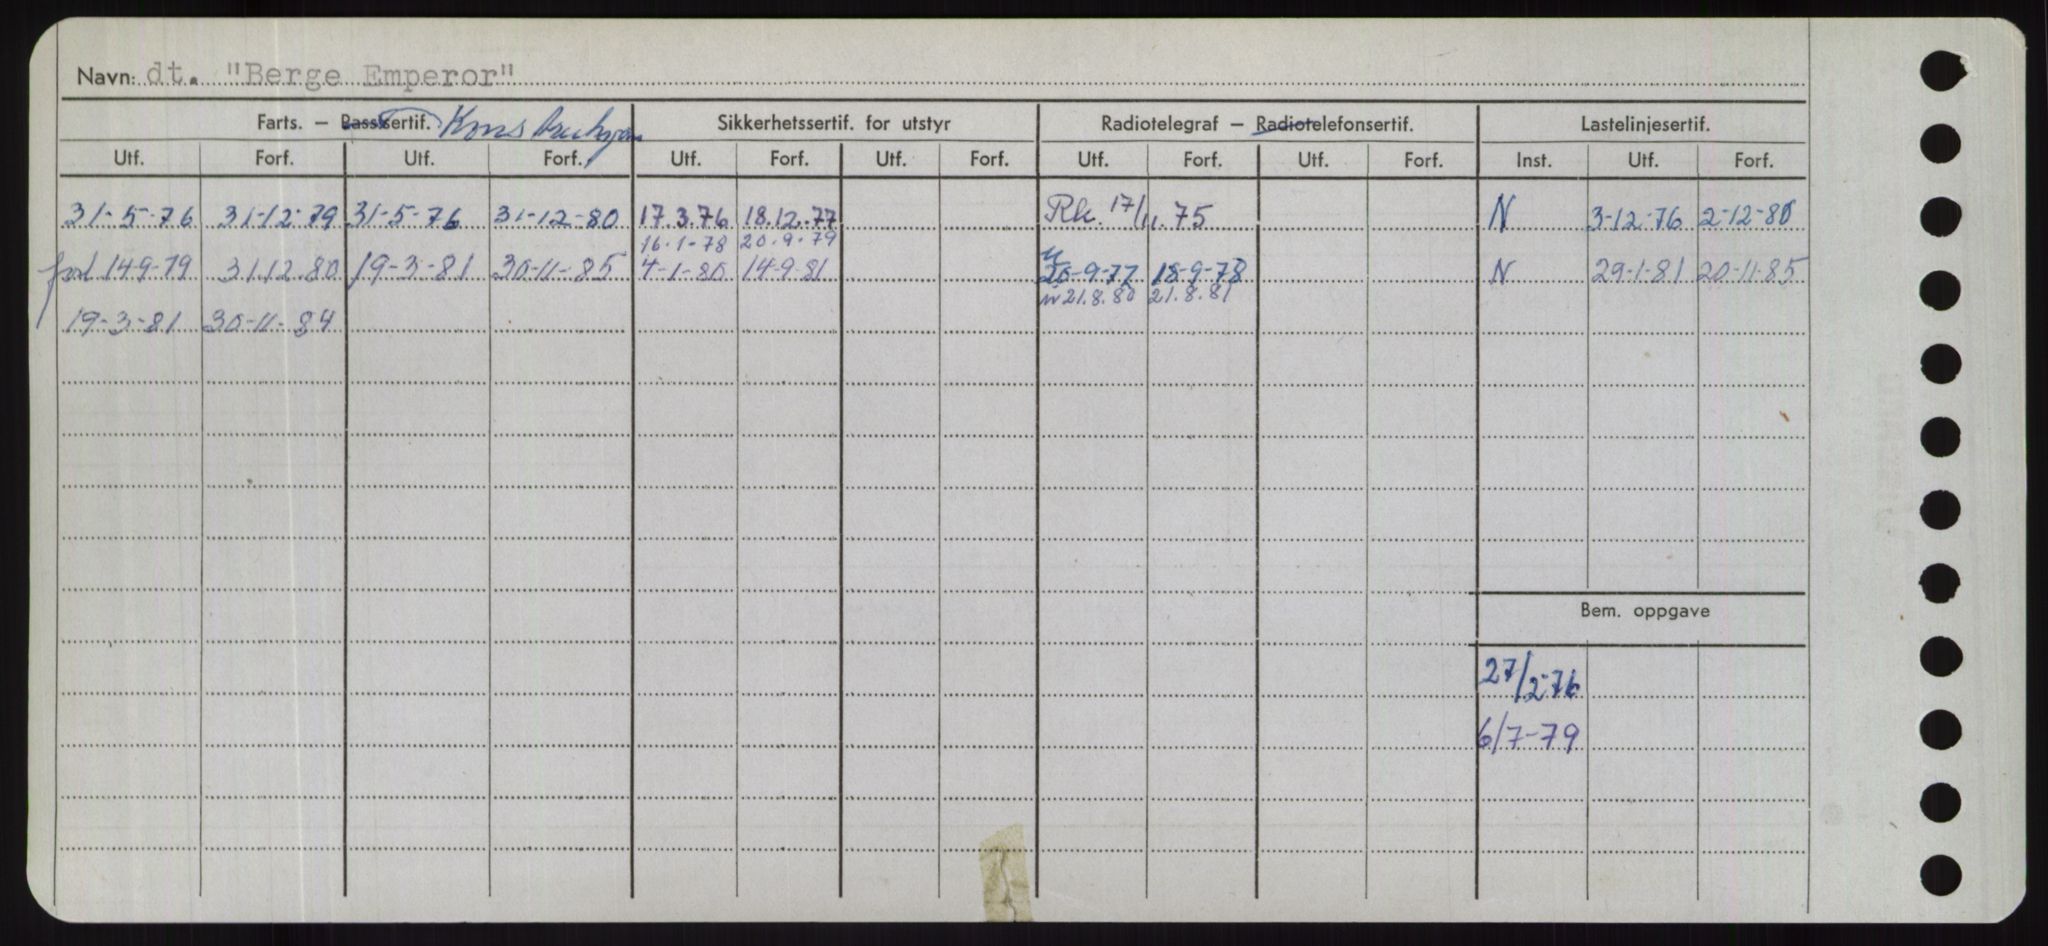 Navn: dt. "Berge Emperor"
Farts. – Passsertif. Sikkerhetssertif. for utstyr Radiotelegraf – Radiotelefonsertif. Lastelinjesertif.
Utf. Forf. Utf. Forf. Utf. Forf. Utf. Forf. Utf. Forf. Utf. Forf. Inst. Utf. Forf.
31-5-76 31-12-79 31-5-76 31-12-80 17.3.76 18.12.77 Rk. 17/11.75 N 3-12-76 2-12-80
16-1-78 20.9.79
14-9-79 31.12.80 19-3-81 30-11-85 4-1-80 14-9-81 20-9-77 18-9-78 N 29-1-81 20-11-85
21.8.80 21.8.81
19-3-81 30-11-84
Bem. oppgave
27/2-76
6/7-79